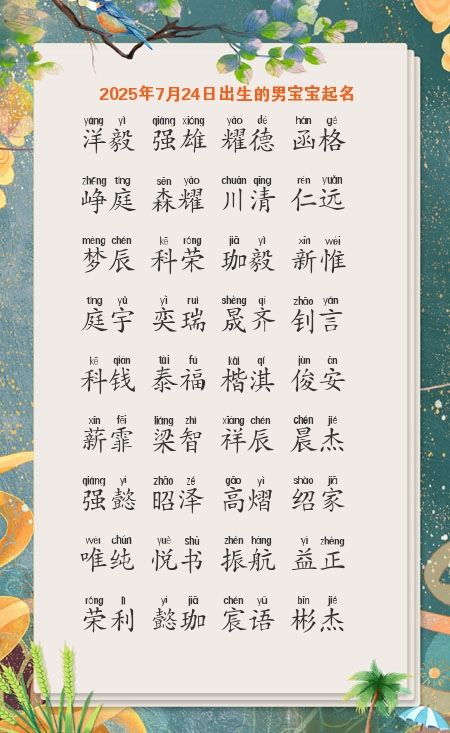 2025年7月24日出生的男宝宝起名
yáng yì qiáng xióng yào dé hán gé
洋毅 强雄 耀德 函格
zhēng tíng sēn yào chuān qīng rén yuǎn
峥庭 森耀 川清 仁远
mèng chén kē róng jiā yì xīn wéi
梦辰 科荣 珈毅 新惟
tíng yǔ yì ruì shèng qí zhāo yán
庭宇 奕瑞 晟齐 钊言
kē qián tài fú kǎi qí jùn ān
科钱 泰福 楷淇 俊安
xīn fēi liáng zhì xiáng chén chén jié
薪霏 梁智 祥辰 晨杰
qiáng yì zhāo zé gāo yì shào jiā
强懿 昭泽 高熠 绍家
wéi chún yuè shū zhèn háng yì zhèng
唯纯 悦书 振航 益正
róng lì yì jiā chén yǔ bīn jié
荣利 懿珈 宸语 彬杰